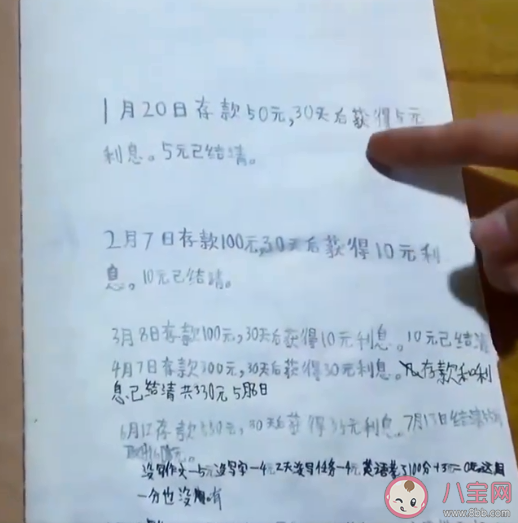 1月20日存款50元,30天后获得5元
利息。5元已结清。
2月7日存款100元,30天后获得10元利
息。10元已结清。
3月8日存款100元,30天后获得10元利息。10元已结清
4月7日存款300元,30天后获得30元利息。存款和利
息已结清共330元 5月8日
6月1日存款330元,30天后获得33元利息。7月1日结清
没写作文一5元没写字一4元2天没写任务一4元英语考了100分+3元
一分也没用
八宝网
www.8bb.com